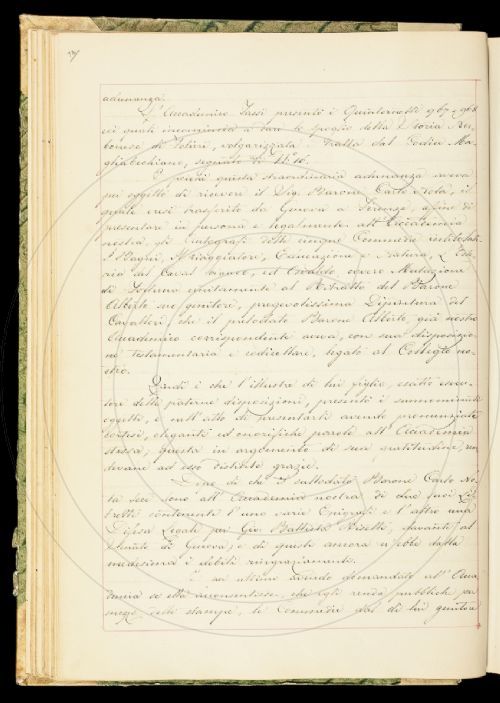 adunanza.
L'Accademico Fassi presentò i Quinternetti 967, 968
coi quali incomincia a dare lo spoglio della Storia
di volgarizzata, e tratta dal Codice Ma-
gliabechiano, segnato
E poiché questa straordinaria adunanza aveva
per oggetto di ricevere il Sig. Barone Carlo Nota, il
quale erasi trasferito da Genova a Firenze, a fine di
presentare in persona e legalmente all'Accademia
nostra gli Autografi delle cinque Commedie intitolate
I Bagni, Viaggiatore, Educazione e Natura, L'Oste-
ria del Caval ed Osvaldo, ovvero Mutazione
di unitamente al Ritratto del Barone
Alberto suo genitore, pregevolissima Dipintura del
Cavalleri, che il prelodato Barone Alberto, già nostro
Accademico corrispondente aveva, con sua disposizio-
ne testamentaria e codicillare, legato al Collegio no-
stro.
Quindi è che l'illustre di lui figlio, esatto esecu-
tore delle paterne disposizioni, presentò i summenzionati
oggetti, e nell'atto di presentarli avendo pronunziate
cortesi, eleganti ed onorifiche parole all'Accademia
stessa, questa in argomento di sua gratitudine, ren-
devane ad esso distinte grazie.
Dopo di che il sullodato Barone Carlo No-
ta fece dono all'Accademia nostra di due suoi Li-
bretti contenente l'uno varie Epigrafi e l'altro una
Difesa Legale per Gio. Battista davanti al
Senato di Genova; e di questi ancora n'ebbe dalla
medesima i debiti ringraziamenti.
E sul avendo domandato all'Acca-
demia se ella acconsentisse, che egli renda pubbliche per
mezzo delle stampe, le Commedie del di lui genitore